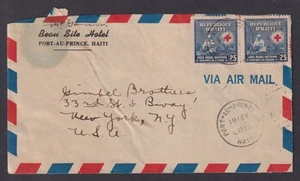 Beau Site Hotel
PORT-AU-PRINCE, HAITI
REPUBLIQUE D'HAITI
25
REPUBLIQUE D'HAITI
25
VIA AIR MAIL
Gimbel Brothers
33rd St & Bway
New York, NY
U.S.A
PORT-AU-PRINCE
HAITI